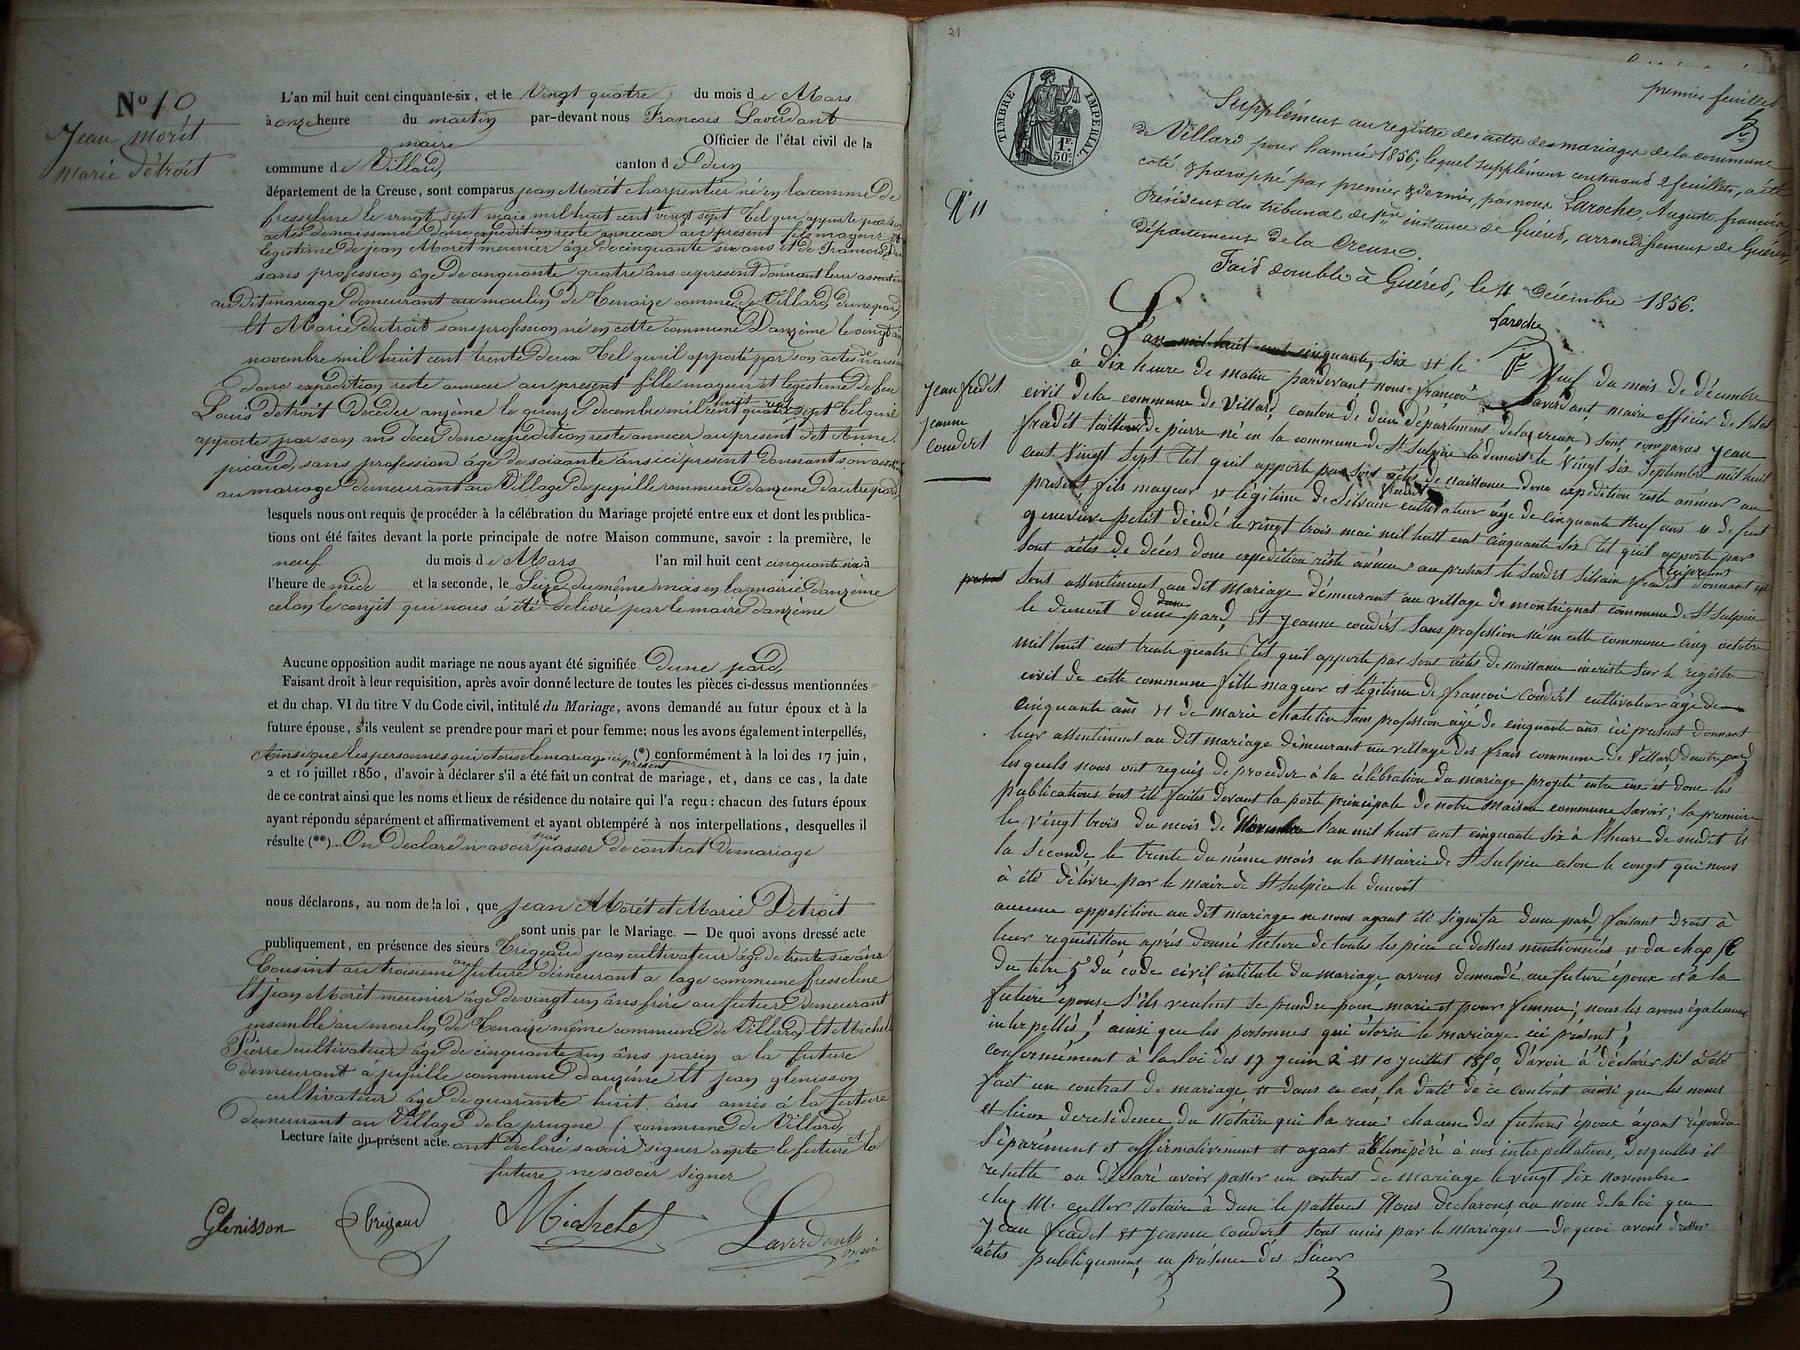 No 10
Jean morét
marie détroit
L'an mil huit cent cinquante-six, et le Vingt quatre du mois de Mars
à onze heure du martin par-devant nous Francois Laverdant
maire Officier de l'état civil de la
commune de Villard, canton d Dun
département de la Creuse, sont comparus jean Morét charpentier né en la comme De
fresseline le vingt sept mais mil huit cent vingt sept tel qui apporte par son
actes de naissance donc expedition reste annecer au présent fils mageur et
legetisme De jean Morét meunier âge de cinquante six ans et de Francoise
sans profession âge de cinquante quatre âns ci présent donnant leur
au dit mariage demeurant au moulin De Tenaize comme de Villard, dune pard,
Et Marie Detroit sans profession né en cette commune Danzème le vingt
novembre mil huit cent trente deux tel qu'il apporté par son actes de naissance
donc expédition reste annecer au présent fille mageur et legetisme De feu
Louis detroit Décéder anzème le quinze decembre mil huit cent quarante sept tel quil
apporte par son acte décer donc expédition reste annecer au présent det Anne
picaud, sans profession âge de soixante âns ici présent donnant son
au mariage demeurant au Village de pupille commune danzeme dautre pard
lesquels nous ont requis de procéder à la célébration du Mariage projeté entre eux et dont les publica-
tions ont été faites devant la porte principale de notre Maison commune, savoir : la première, le
neuf du mois de Mars l'an mil huit cent cinquante six à
l'heure de midi et la seconde, le Seize du même mois en la mairie danzème
celon le conjit qui nous a été delivré par le maire danzème
Aucune opposition audit mariage ne nous ayant été signifiée Dune pard,
Faisant droit à leur requisition, après avoir donné lecture de toutes les pièces ci-dessus mentionnées
et du chap. VI du titre V du Code civil, intitulé du Mariage, avons demandé au futur époux et à la
future épouse, s'ils veulent se prendre pour mari et pour femme; nous les avons également interpellés,
Ainsi que les personnes qui otorise le mariage ici présent (*) conformément à la loi des 17 juin,
2 et 10 juillet 1850, d'avoir à déclarer s'il a été fait un contrat de mariage, et, dans ce cas, la date
de ce contrat ainsi que les noms et lieux de résidence du notaire qui l'a reçu : chacun des futurs époux
ayant répondu séparément et affirmativement et ayant obtempéré à nos interpellations, desquelles il
résulte (**) On declaré n'avoir pas passer de contrat de mariage
nous déclarons, au nom de la loi, que jean Morét et Marie Detroit
sont unis par le Mariage. — De quoi avons dressé acte
publiquement, en présence des sieurs Brigaud jean cultivateur âgé de trente six âns
Cousint au troisieme au future demeurant a lage commune fresseline
Et jean Morét meunier âge de vingt un âns frère au future demeurant
ensemble au moulin de Tenaize même commune de Villard, Et Michelet
Piérre cultivateur âge de cinquante un âns parin a la future
demeurant a pupille commune d'anzéme Et jean glenisson
cultivateur âge de quarante huit âns amis à la future
demeurant au Village de la prugne commune de Villard,
Lecture faite du présent acte ont déclaré savoir signer expte le future et la
future ne savoir signer
Glénisson Brigaud Michelet Laverdant
maire
21
premier feuillet
TIMBRE IMPERIAL
1F. 50c.
Supplément au registre des actes des mariages de la commune
de Villard pour l'année 1856, lequel supplément contenant 2 feuillets, a été
coté & paraphé par premier & dernier, par nous Laroche, Auguste françois
Président du tribunal de 1re instance de Guéret, arrondissement de Guéret,
département de la Creuse.
Fait double à Guéret, le 4 Décembre 1856.
Laroche
N° 11
Jean frédét
jeanne
Coudért
L'an mil huit cent cinquante, six et le Neuf du mois de décembre
à dix heure de matin pardevant nous françois Laverdant maire officier de l'etat
civil de la commune de Villard, canton de dun département de la creuse, sont comparus jean
fradét tailleur de pierre né en la commune de St Sulpice le dunois le Vingt six Septembre mil huit
cent Vingt Sept tet quil apporte par sont acte de naissance donc expédition reste annéxer au
présent, fils mageur et légitime de Silvain fradét cultivateur âge de cinquante Neuf ans et de feut
genevieve petit décédé le vingt trois mai mil huit cent cinquante six tet quil apporte par
sont actes de décés donc expédition reste annéxer au present le susdit Silvain fradét ici présent donnant
sons assentiment au dit mariage démeurant au village de montrignat commune de St Sulpice
le dunoit dune pard, Et Jeanne coudért sans profession né en cette commune cinq octobre
mil huit cent trente quatre tet quil apporte par sont actes de naissance incrite sur le registre
civil de cette commune fille mageur et légitime de françois Coudért cultivateur âge de
cinquante ans et de marie chatelin sans profession âge de cinquante ans ici présent donnant
leur assentiment au dit mariage demeurant au village des frais commune de Villard dautre pard
lesquels nous ont requis de proceder à la célébration du mariage projeté entre eux et donc les
publications ont été faites devant la porte principale de notre maison commune savoir; la premiere
le vingt trois du mois de Novembre l'an mil huit cent cinquante six à l'heure de midit et
la seconde, le trente du même mois en la mairie de St Sulpice celon le conget qui nous
à été délivre par le maire de St Sulpice le dunoit
aucune opposition au dit mariage ne nous ayant été signifié dune pard, faisant droit à
leur requisition aprés donné lecture de toutes les piéce ci dessus mentionnées et du chap 6
du titre 5 du code civil intitulé du mariage, avons demandé au future époux et à la
future épouse s'ils veulent se prendre pour marie et pour femme; nous les avons également
interpellés; ainsi que les personnes qui otorise le mariage ici présent;
conformément à la loi des 17 juin 2 et 10 juillet 1850, d'avoir à déclarer sil a été
fait un contrat de mariage et dans ce cas, la date de ce contrat ainsi que les noms
et lieux de residence du Notaire qui la recu: chacun des futurs époux ayant répondu
Séparément et affirmativement et ayant obtempéré à nos interpellations, desquelles il
resulte on déclaré avoir passer un contrat de mariage le vingt six novembre
chez M. Notaire à Dun le Nous déclarons au nom de la loi que
Jean fradet et Jeanne coudert sont unis par le mariages — de quoi avons dresser
actes publiquement en présence des Sieur